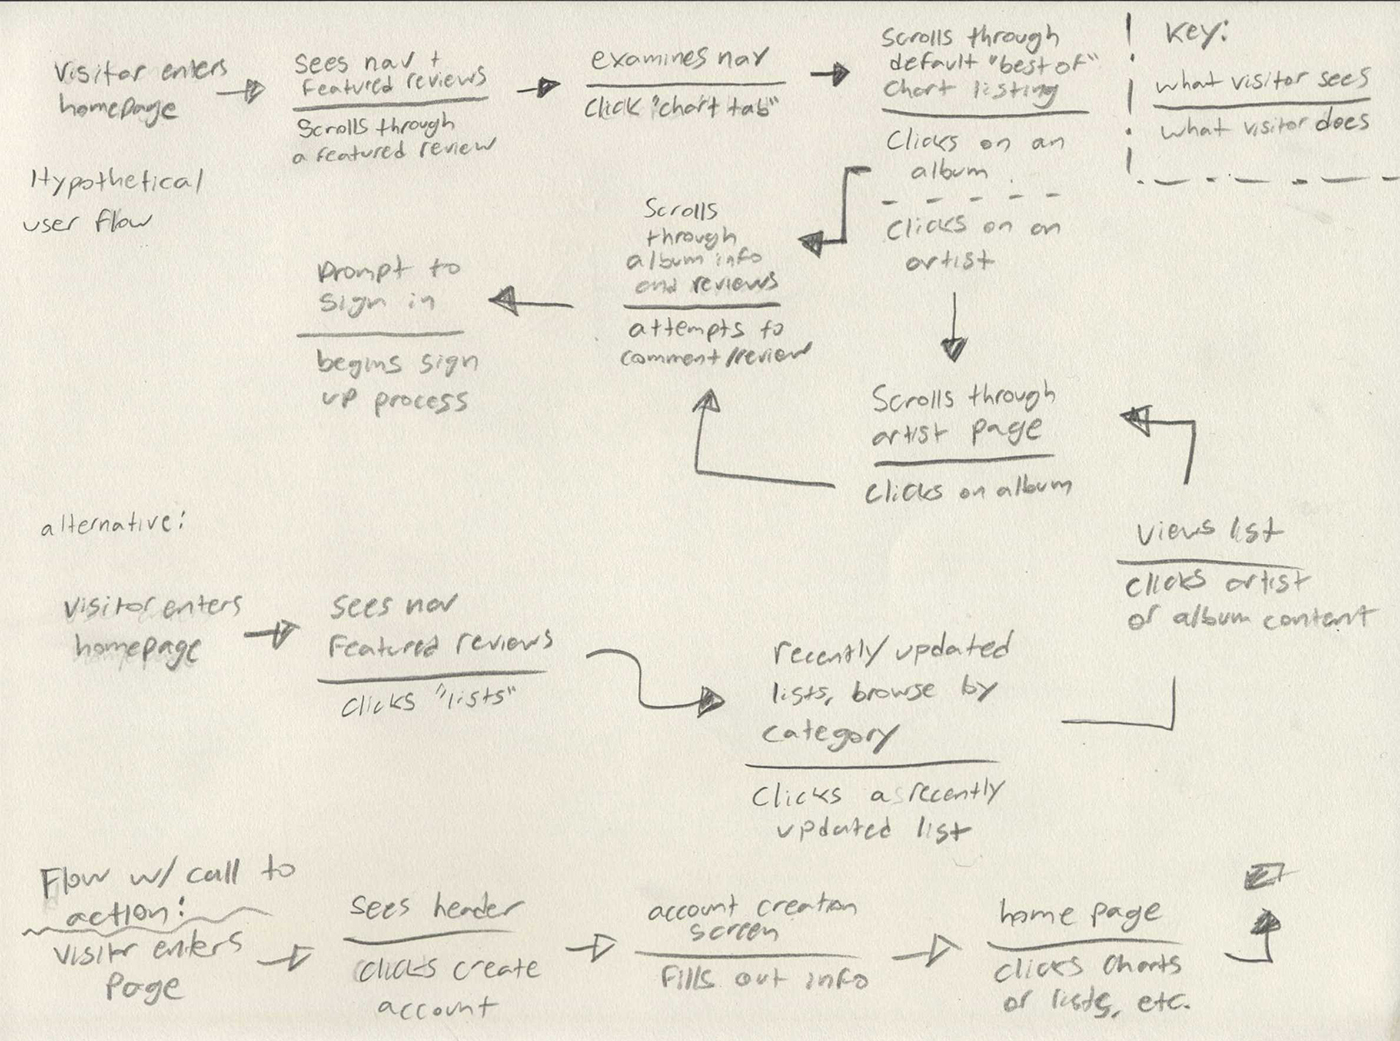 Visitor enters
homepage
sees nav +
Featured reviews
Scrolls through
a featured review
examines nav
Click "chart tab"
Scrolls through
default "best of"
chart listing
Clicks on an
album
Clicks on an
artist
Key:
what visitor sees
what visitor does
Hypothetical
user flow
Scrolls
through
album info
and reviews
attempts to
comment/review
Prompt to
sign in
begins sign
up process
Scrolls through
artist page
Clicks on album
alternative:
Visitor enters
homepage
sees nav
Featured reviews
Clicks "lists"
recently updated
lists, browse by
category
Clicks a recently
updated list
views list
Clicks artist
or album content
Flow w/ call to
action:
Visitor enters
Page
sees header
Clicks create
account
account creation
screen
Fills out info
home page
Clicks Charts
or lists, etc.